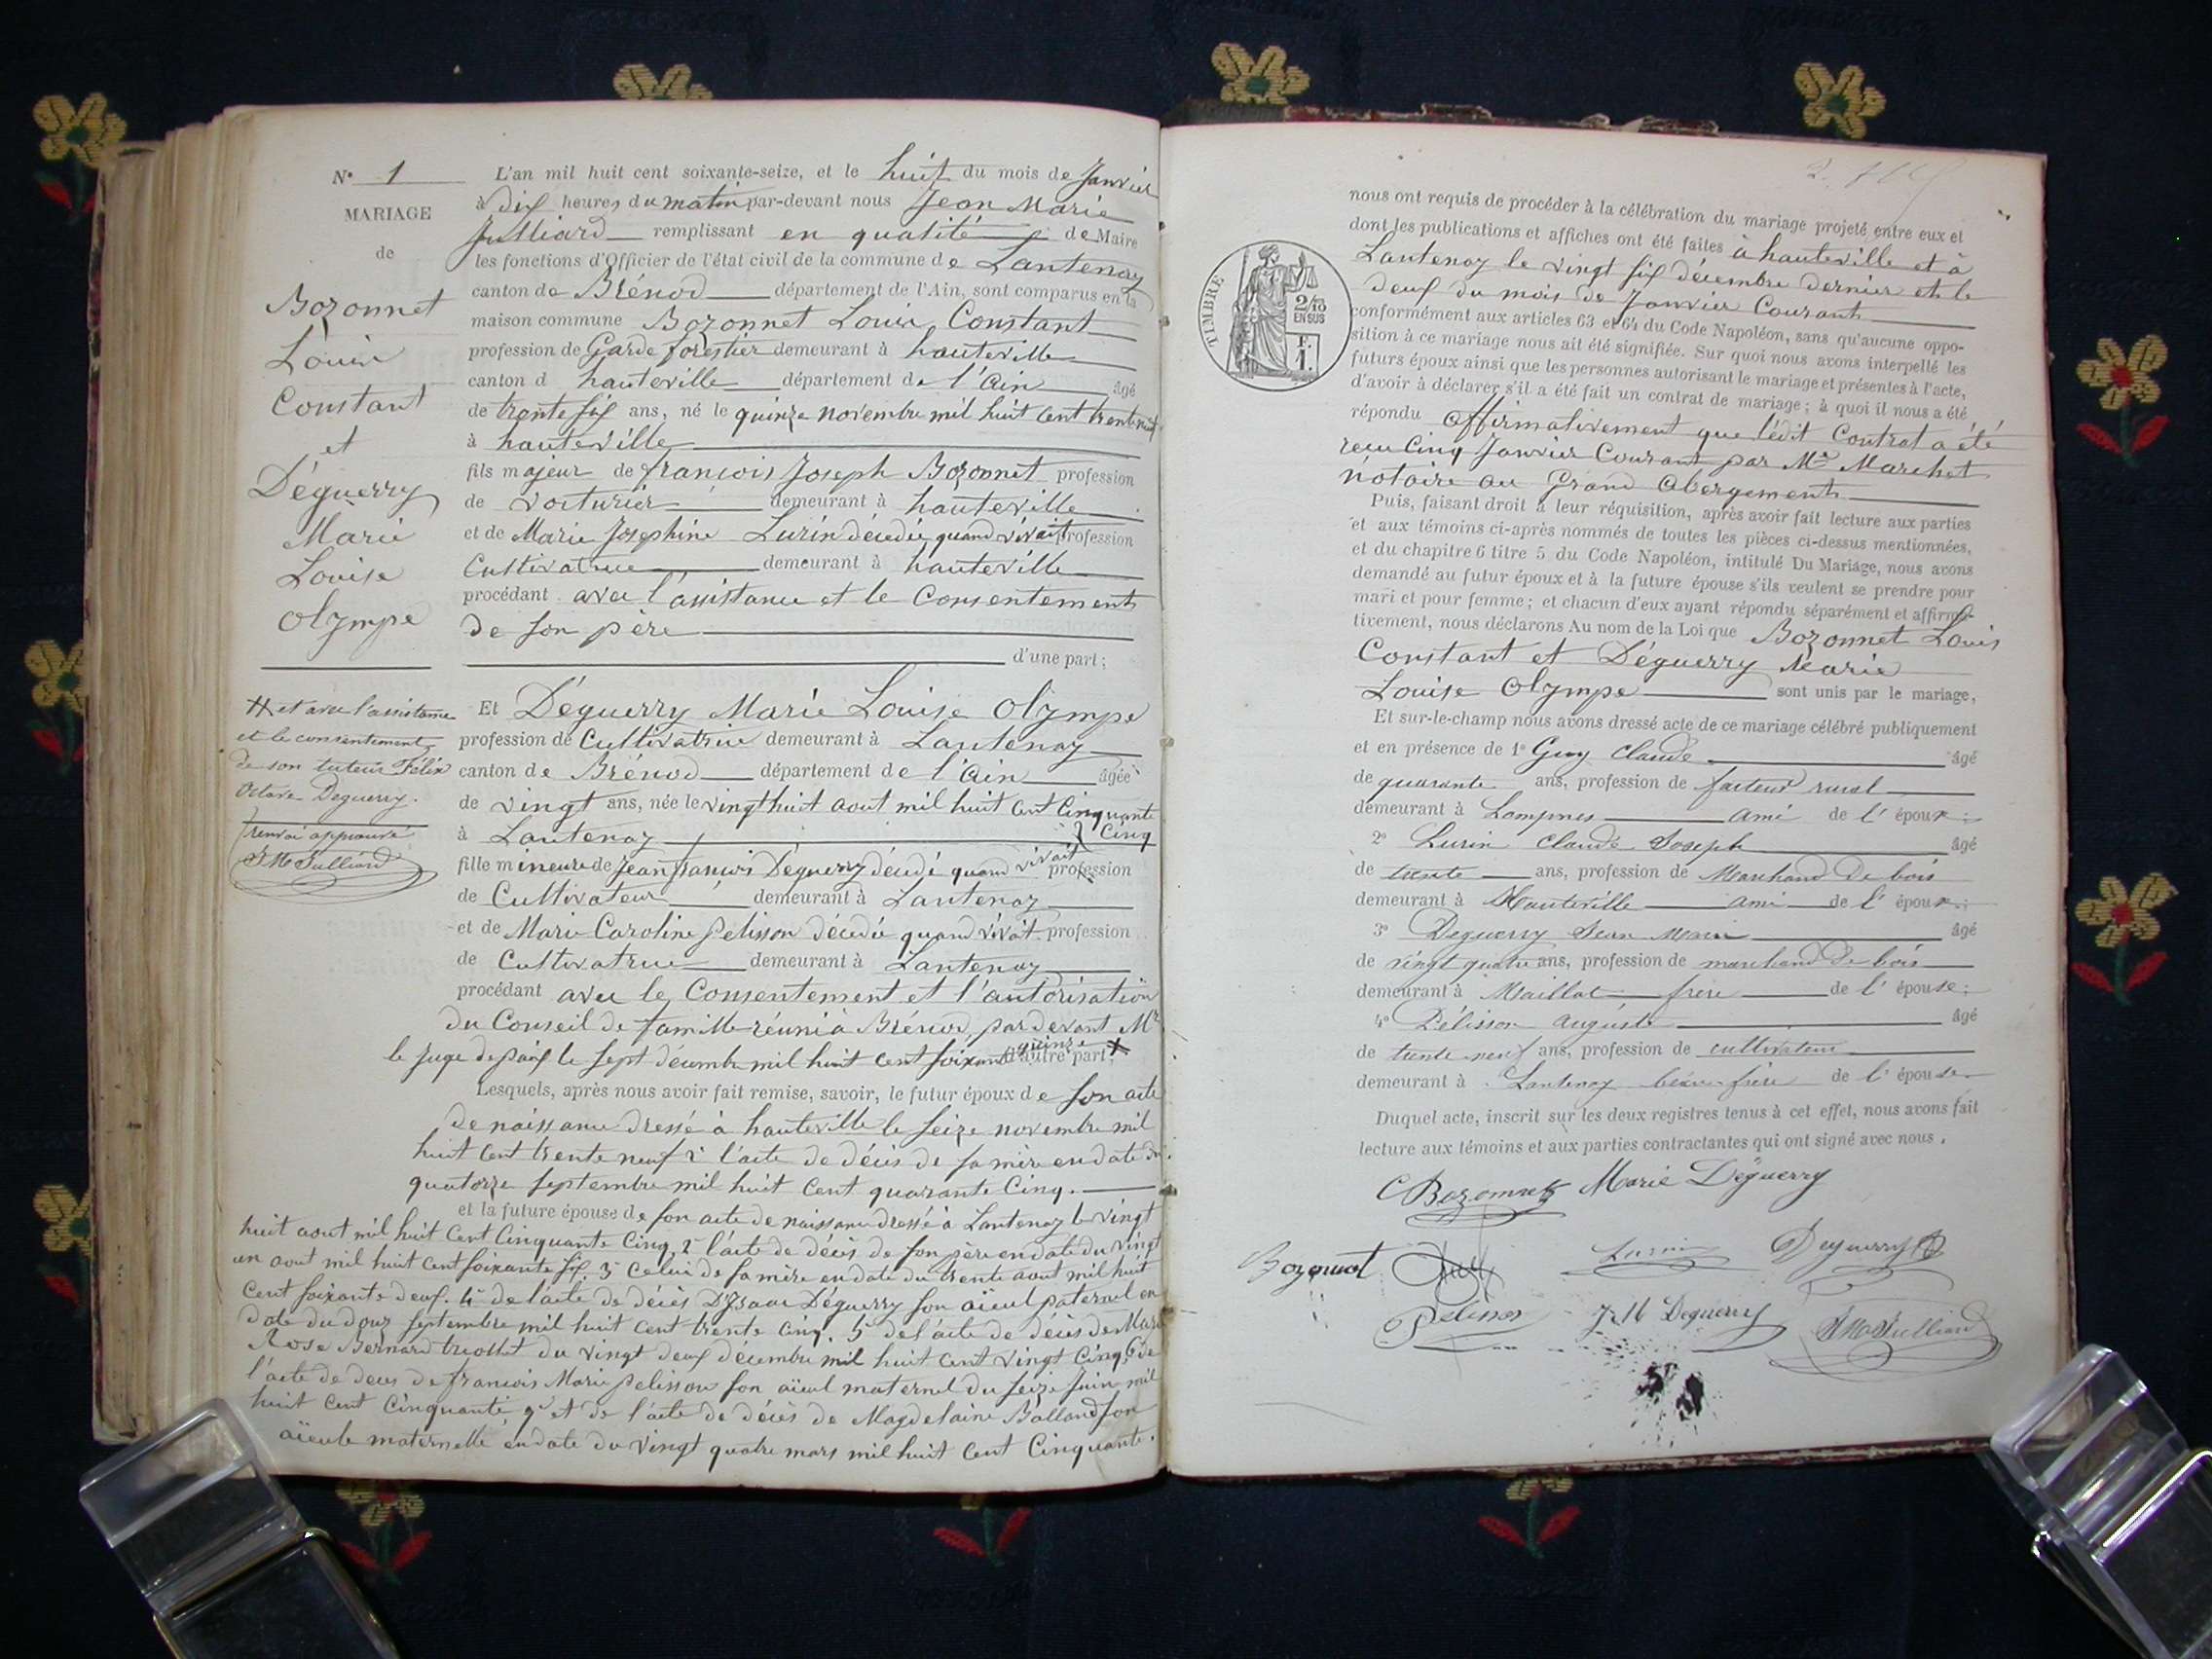 N° 1
MARIAGE
de
Bozonnet
Louis
Constant
et
Déguerry
Marie
Louise
Olympe
L'an mil huit cent soixante-seize, et le huit du mois de Janvier
à dix heures du matin par-devant nous Jean Marie
Julliard remplissant en qualité de Maire
les fonctions d'Officier de l'état civil de la commune de Lantenay
canton de Brénod département de l'Ain, sont comparus en la
maison commune Bozonnet Louis Constant
profession de Garde forestier demeurant à hauteville
canton d hauteville département de l'Ain âgé
de trente six ans, né le quinze novembre mil huit cent trente neuf
à hauteville
fils majeur de françois Joseph Bozonnet profession
de voiturier demeurant à hauteville
et de Marie Josephine Lurin décédée quand vivait profession
Cultivatrice demeurant à hauteville
procédant avec l'assistance et le Consentement
de son père
d'une part;
Et Déguerry Marie Louise Olympe
profession de Cultivatrice demeurant à Lantenay
canton de Brénod département de l'Ain âgée
de vingt ans, née le vingt huit aout mil huit cent Cinquante
Cinq
à Lantenay
fille mineure de Jean françois Déguerry décédé quand vivait profession
de Cultivateur demeurant à Lantenay
et de Marie Caroline Pelisson décédée quand vivait profession
de Cultivatrice demeurant à Lantenay
procédant avec le Consentement et l'autorisation
du Conseil de famille réuni à Brénod, par devant Mr
le Juge de paix le sept décembre mil huit cent soixante quinze d'autre part;
et avec l'assistance
et le consentement
de son tuteur Félix
Octave Deguerry.
renvoi approuvé
JM Julliard
Lesquels, après nous avoir fait remise, savoir, le futur époux de son acte
de naissance dressé à hauteville le seize novembre mil
huit cent trente neuf 2° l'acte de décès de sa mère en date du
quatorze septembre mil huit cent quarante Cinq.
et la future épouse de son acte de naissance dressé à Lantenay le vingt
huit aout mil huit Cent Cinquante Cinq, 2° l'acte de décès de son père en date du vingt
un aout mil huit cent soixante six. 3° Celui de sa mère en date du trente aout mil huit
Cent soixante deux. 4° de l'acte de décès D'Isaac Déguerry son aïeul paternel en
date du douz septembre mil huit cent trente cinq. 5° de l'acte de décès de Marie
Rose Bernard du vingt deux décembre mil huit cent vingt Cinq, 6° de
l'acte de deces de françois Marie Pelisson son aïeul maternel du seize Juin mil
huit cent Cinquante 7° et de l'acte de décès de Magdelaine Balland son
aïeule maternelle en date du vingt quatre mars mil huit Cent Cinquante.
nous ont requis de procéder à la célébration du mariage projeté entre eux et
dont les publications et affiches ont été faites à hauteville et à
Lantenay le vingt six décembre dernier et le
deux du mois de Janvier Courant
TIMBRE
2/10
EN SUS
F.
1.
conformément aux articles 63 et 64 du Code Napoléon, sans qu'aucune oppo-
sition à ce mariage nous ait été signifiée. Sur quoi nous avons interpellé les
futurs époux ainsi que les personnes autorisant le mariage et présentes à l'acte,
d'avoir à déclarer s'il a été fait un contrat de mariage; à quoi il nous a été
répondu affirmativement que ledit Contrat a été
reçu Cinq Janvier Courant par Me Marchet
notaire au Grand Abergement
Puis, faisant droit à leur réquisition, après avoir fait lecture aux parties
et aux témoins ci-après nommés de toutes les pièces ci-dessus mentionnées,
et du chapitre 6 titre 5 du Code Napoléon, intitulé Du Mariage, nous avons
demandé au futur époux et à la future épouse s'ils veulent se prendre pour
mari et pour femme; et chacun d'eux ayant répondu séparément et affirma-
tivement, nous déclarons Au nom de la Loi que Bozonnet Louis
Constant et Déguerry Marie
Louise Olympe sont unis par le mariage,
Et sur-le-champ nous avons dressé acte de ce mariage célébré publiquement
et en présence de 1° Guy Claude âgé
de quarante ans, profession de facteur rural
demeurant à Lompnes ami de l'époux;
2° Lurin Claude Joseph âgé
de trente ans, profession de Marchand de bois
demeurant à Hauteville ami de l'époux;
3° Deguerry Jean Marie âgé
de vingt quatre ans, profession de marchand de bois
demeurant à Maillat frère de l'épouse;
4° Pélisson Auguste âgé
de trente neuf ans, profession de cultivateur
demeurant à Lantenay beau-frère de l'épouse
Duquel acte, inscrit sur les deux registres tenus à cet effet, nous avons fait
lecture aux témoins et aux parties contractantes qui ont signé avec nous.
CBozonnet Marie Déguerry
Bozonnet Lurin Deguerry
Pélisson JM Deguerry JM Julliard